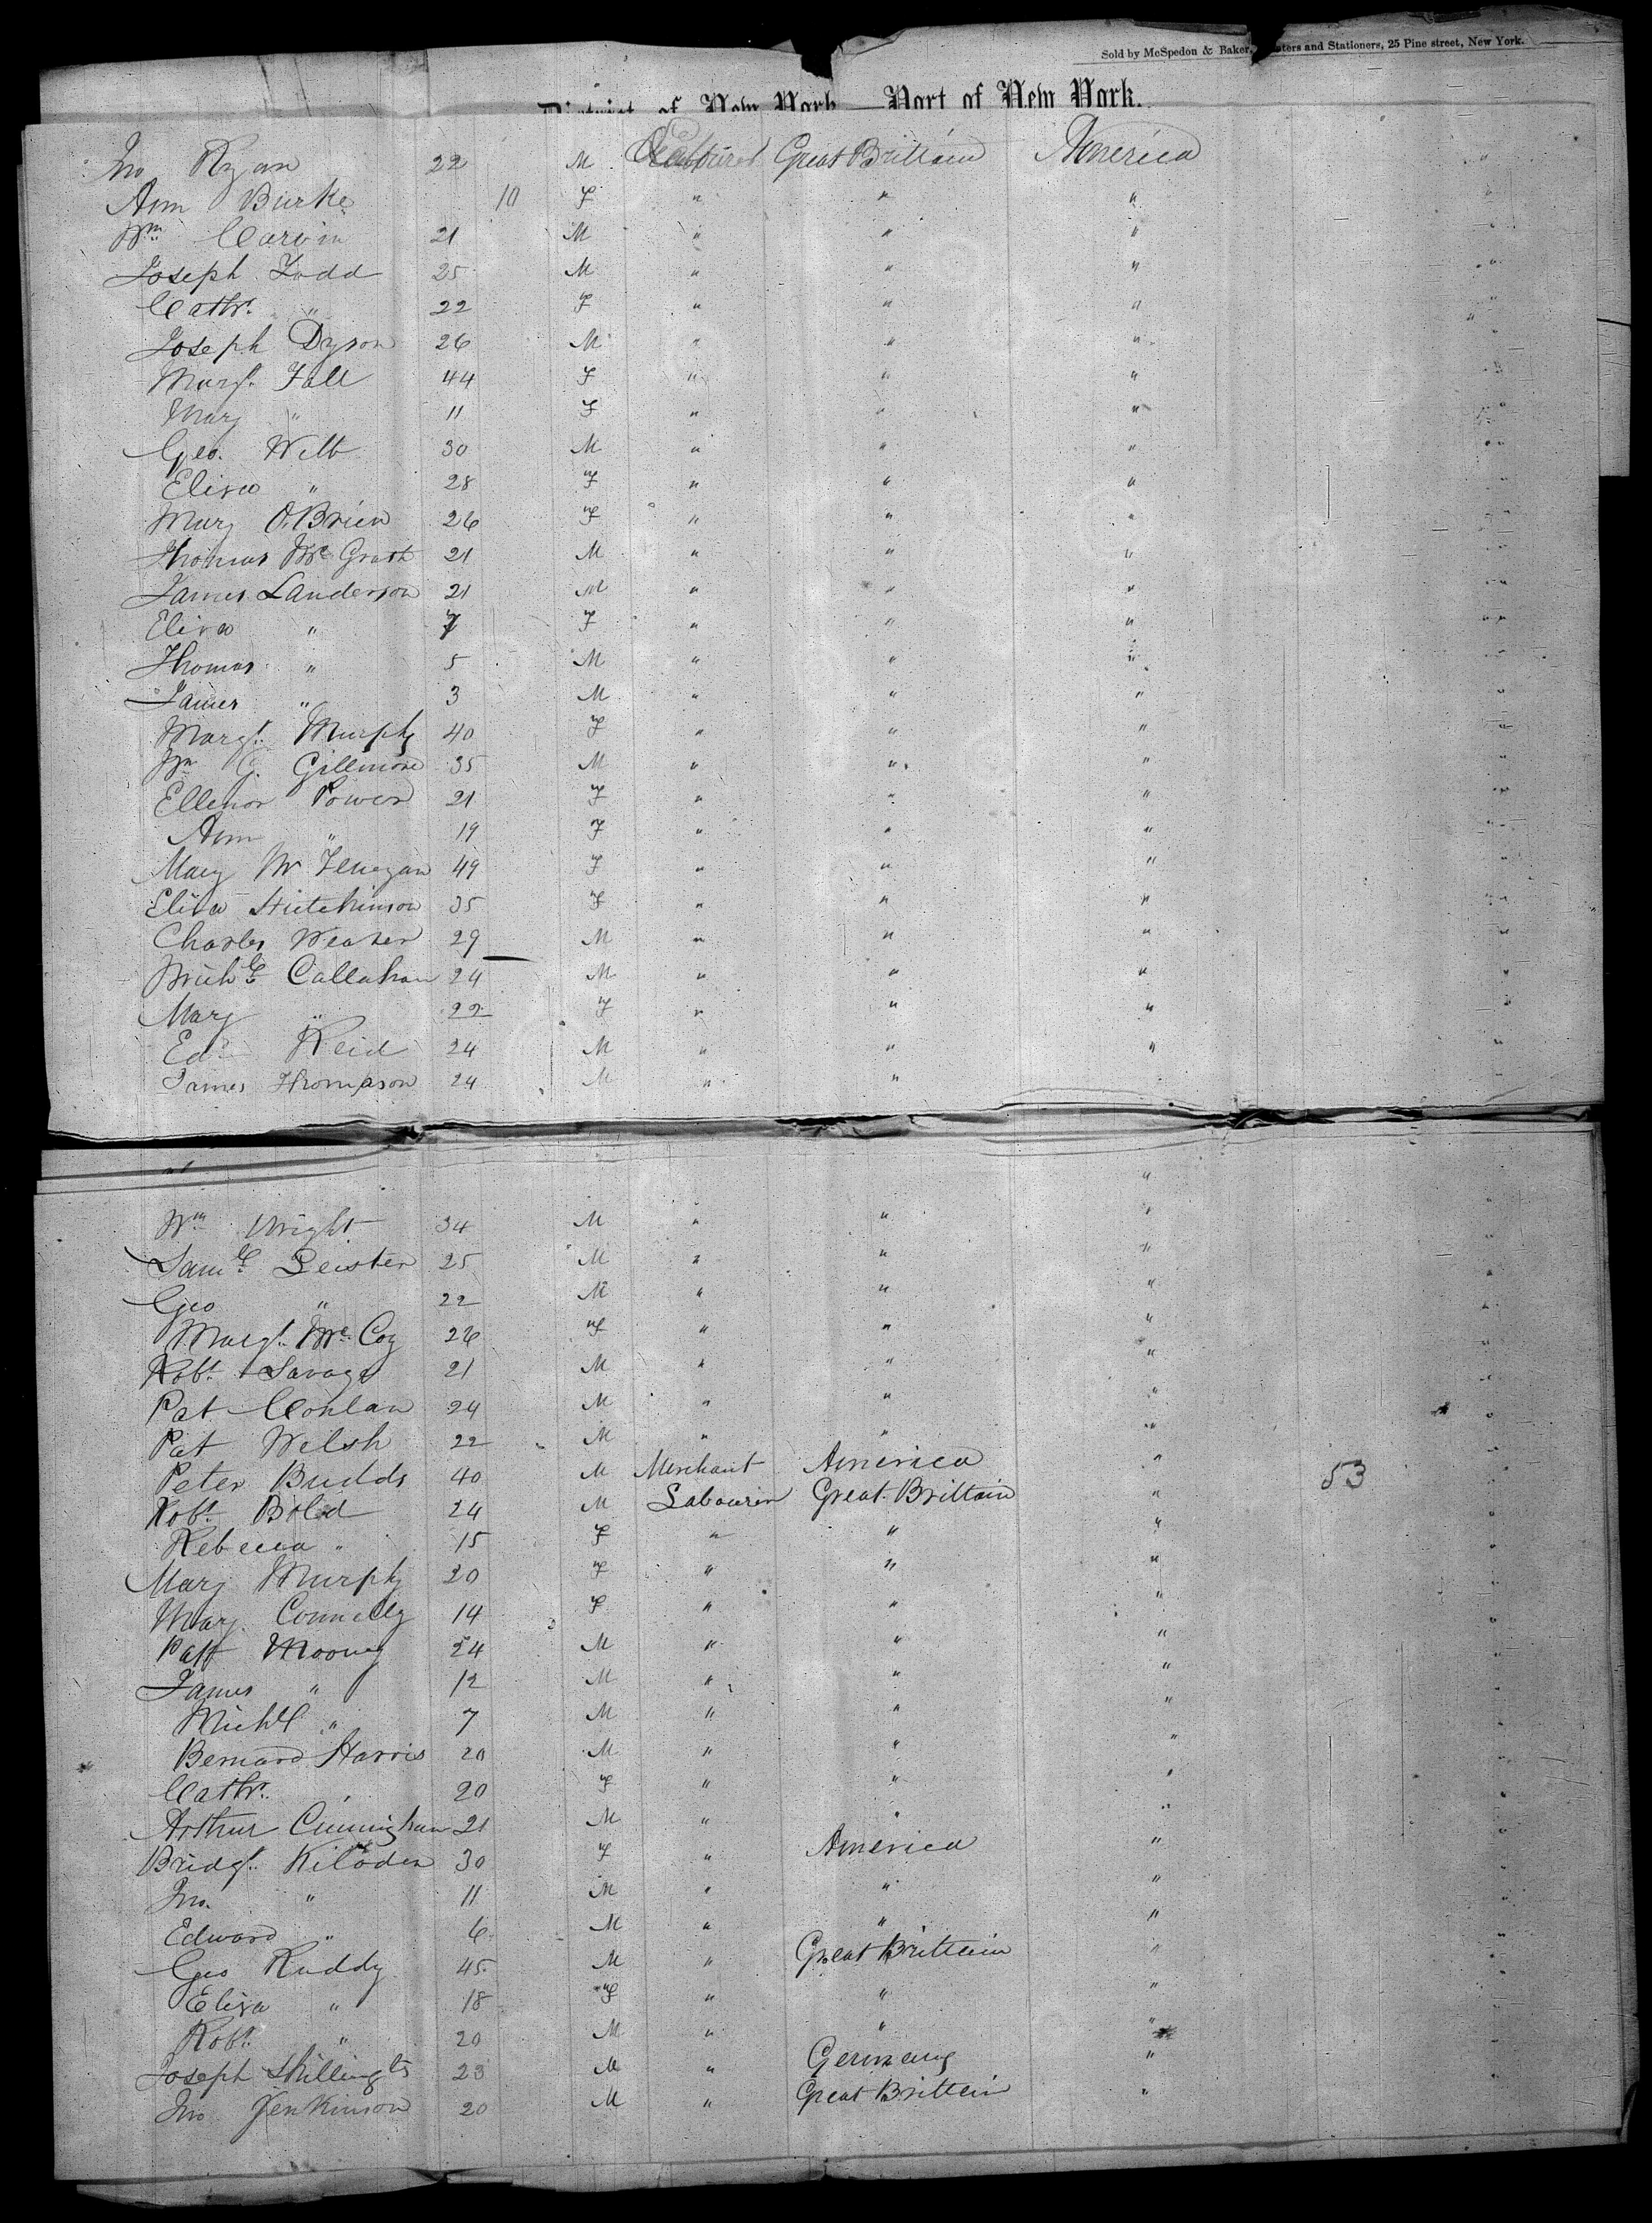 Sold by McSpedon & Baker, Stationers, 25 Pine street, New York.
District of New York—Port of New York.
Jno Ryan 22 M Great Brittain America
Ann Burke 10 F " " "
Wm Carvin 21 M " " "
Joseph Todd 25 M " " "
Cathr. " 22 F " " "
Joseph Dyson 26 M " " "
Margt. Fall 44 F " " "
Mary " 11 F " " "
Geo. Welb 30 M " " "
Eliza " 28 F " " "
Mary O.Brien 26 F " " "
Thomas Mc Grath 21 M " " "
James Sanderson 21 M " " "
Eliza " 7 F " " "
Thomas " 5 M " " "
James " 3 M " " "
Margt. Murphy 40 F " " "
Wm G. Gillmore 35 M " " "
Ellenor Power 21 F " " "
Ann " 19 F " " "
Mary Mc 49 F " " "
Eliza Hutchinson 35 F " " "
Charles Weaver 29 M " " "
Michl Callahan 24 M " " "
Mary " 22 F " " "
Ed Reid 24 M " " "
James Thompson 24 M " "
Wm Wright 34 M " " "
Saml Leister 25 M " " "
Geo " 22 M " " "
Margt. Mc Coy 26 F " " "
Robt. Savage 21 M " " "
Pat Conlan 24 M " " "
Pat Welsh 22 M " " "
Peter Budds 40 M Merchant America " 53
Robt. Bold 24 M Labourer Great Brittain "
Rebecca " 15 F " " "
Mary Murphy 20 F " " "
Mary Connelly 14 F " " "
Patt Mooney 24 M " " "
James " 12 M " " "
Michll " 7 M " " "
Bernard Harris 20 M " " "
Cathr. " 20 F " " "
Arthur Cunningham 21 M " " "
Bridgt. Kiloden 30 F " America "
Jno. " 11 M " " "
Edward " 6 M " " "
Geo Ruddy 45 M " Great Brittain "
Eliza " 18 F " " "
Robt. " 20 M " " "
Joseph 23 M " Germany "
Jno Jenkinson 20 M " Great Brittain "